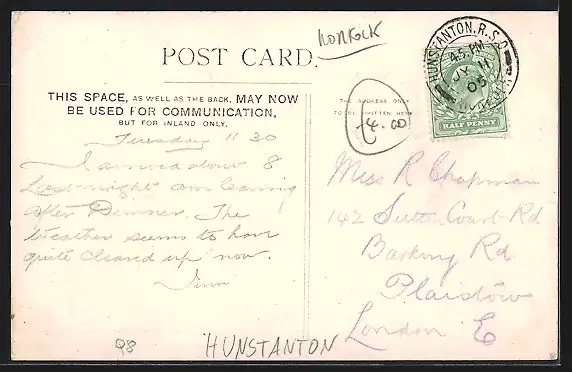 NORFOLK
POST CARD.
THIS SPACE, AS WELL AS THE BACK, MAY NOW
BE USED FOR COMMUNICATION,
BUT FOR INLAND ONLY.
THE ADDRESS ONLY
TO BE WRITTEN HERE
4.00
HUNSTANTON. R.S.O
4.5 PM
JY 11
05
NORFOLK
HALF PENNY
Tuesday 11 30
I arrived about 8
Last night am leaving
after Dinner. The
Weather seems to have
quite cleared up now.
Miss R Chapman
142 Sutton Court Rd
Barking Rd
Plaistow
London E
Q8
HUNSTANTON